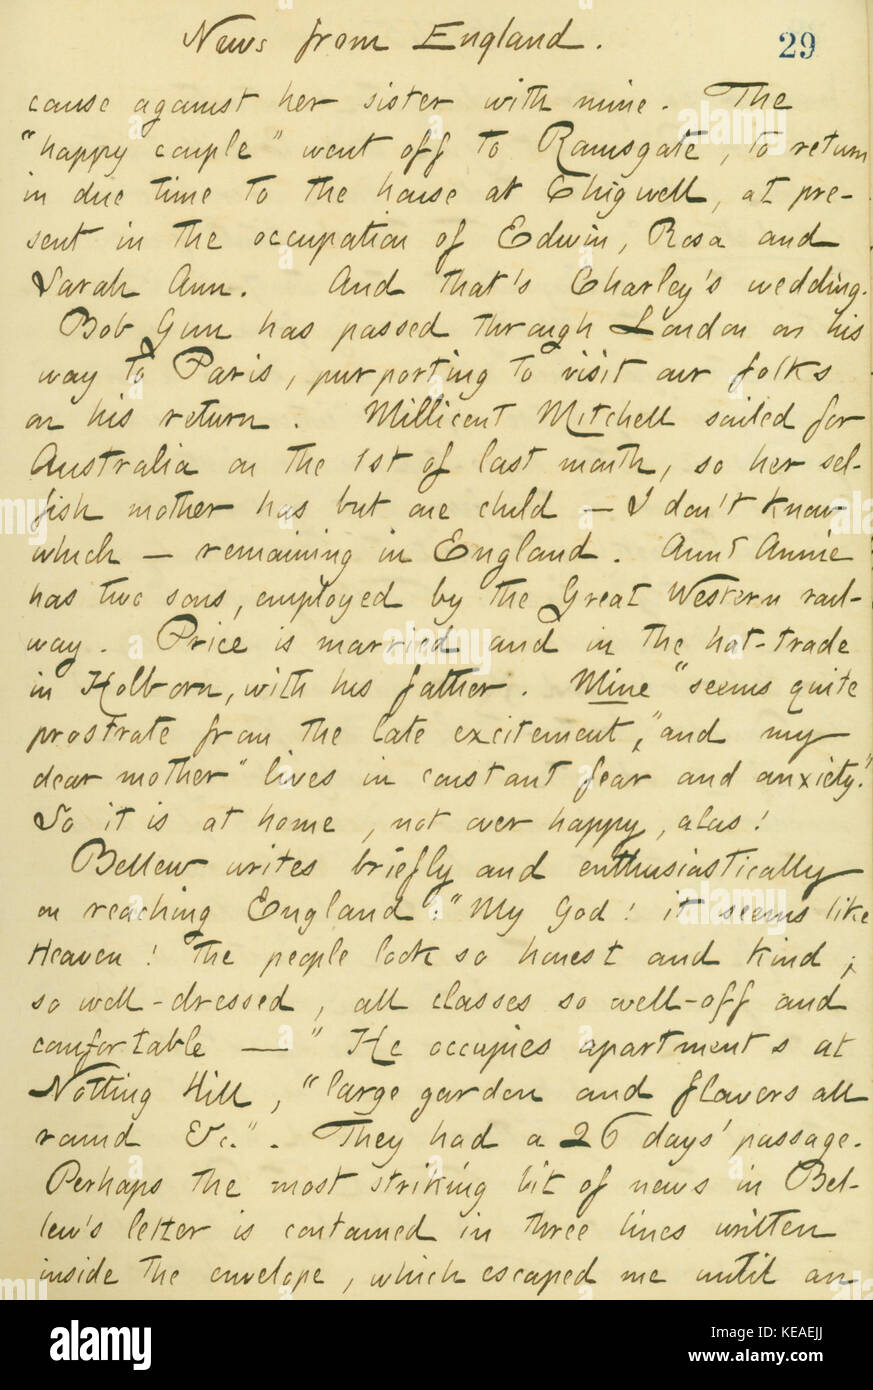 News from England.
29
cause against her sister with mine. The
"happy couple" went off to Ramsgate, to return
in due time to the house at Chigwell, at pre-
sent in the occupation of Edwin, Rosa and
Sarah Ann. And that's Charley's wedding.
Bob Gun has passed through London on his
way to Paris, purporting to visit our folks
on his return. Millicent Mitchell sailed for
Australia on the 1st of last month, so her sel-
fish mother has but one child — I don't know
which — remaining in England. Aunt Annie
has two sons, employed by the Great Western rail-
way. Price is married and in the hat-trade
in Holborn, with his father. Mine "seems quite
prostrate from the late excitement," and my
dear mother "lives in constant fear and anxiety."
So it is at home, not over happy, alas!
Bellew writes briefly and enthusiastically
on reaching England: "My God! it seems like
Heaven! The people look so honest and kind,
so well-dressed, all classes so well-off and
comfortable —" He occupies apartments at
Notting Hill, "large garden and flowers all
round &c." They had a 26 days' passage.
Perhaps the most striking bit of news in Bel-
lew's letter is contained in three lines written
inside the envelope, which escaped me until an
alamy
Image ID: KEAEJJ
www.alamy.com